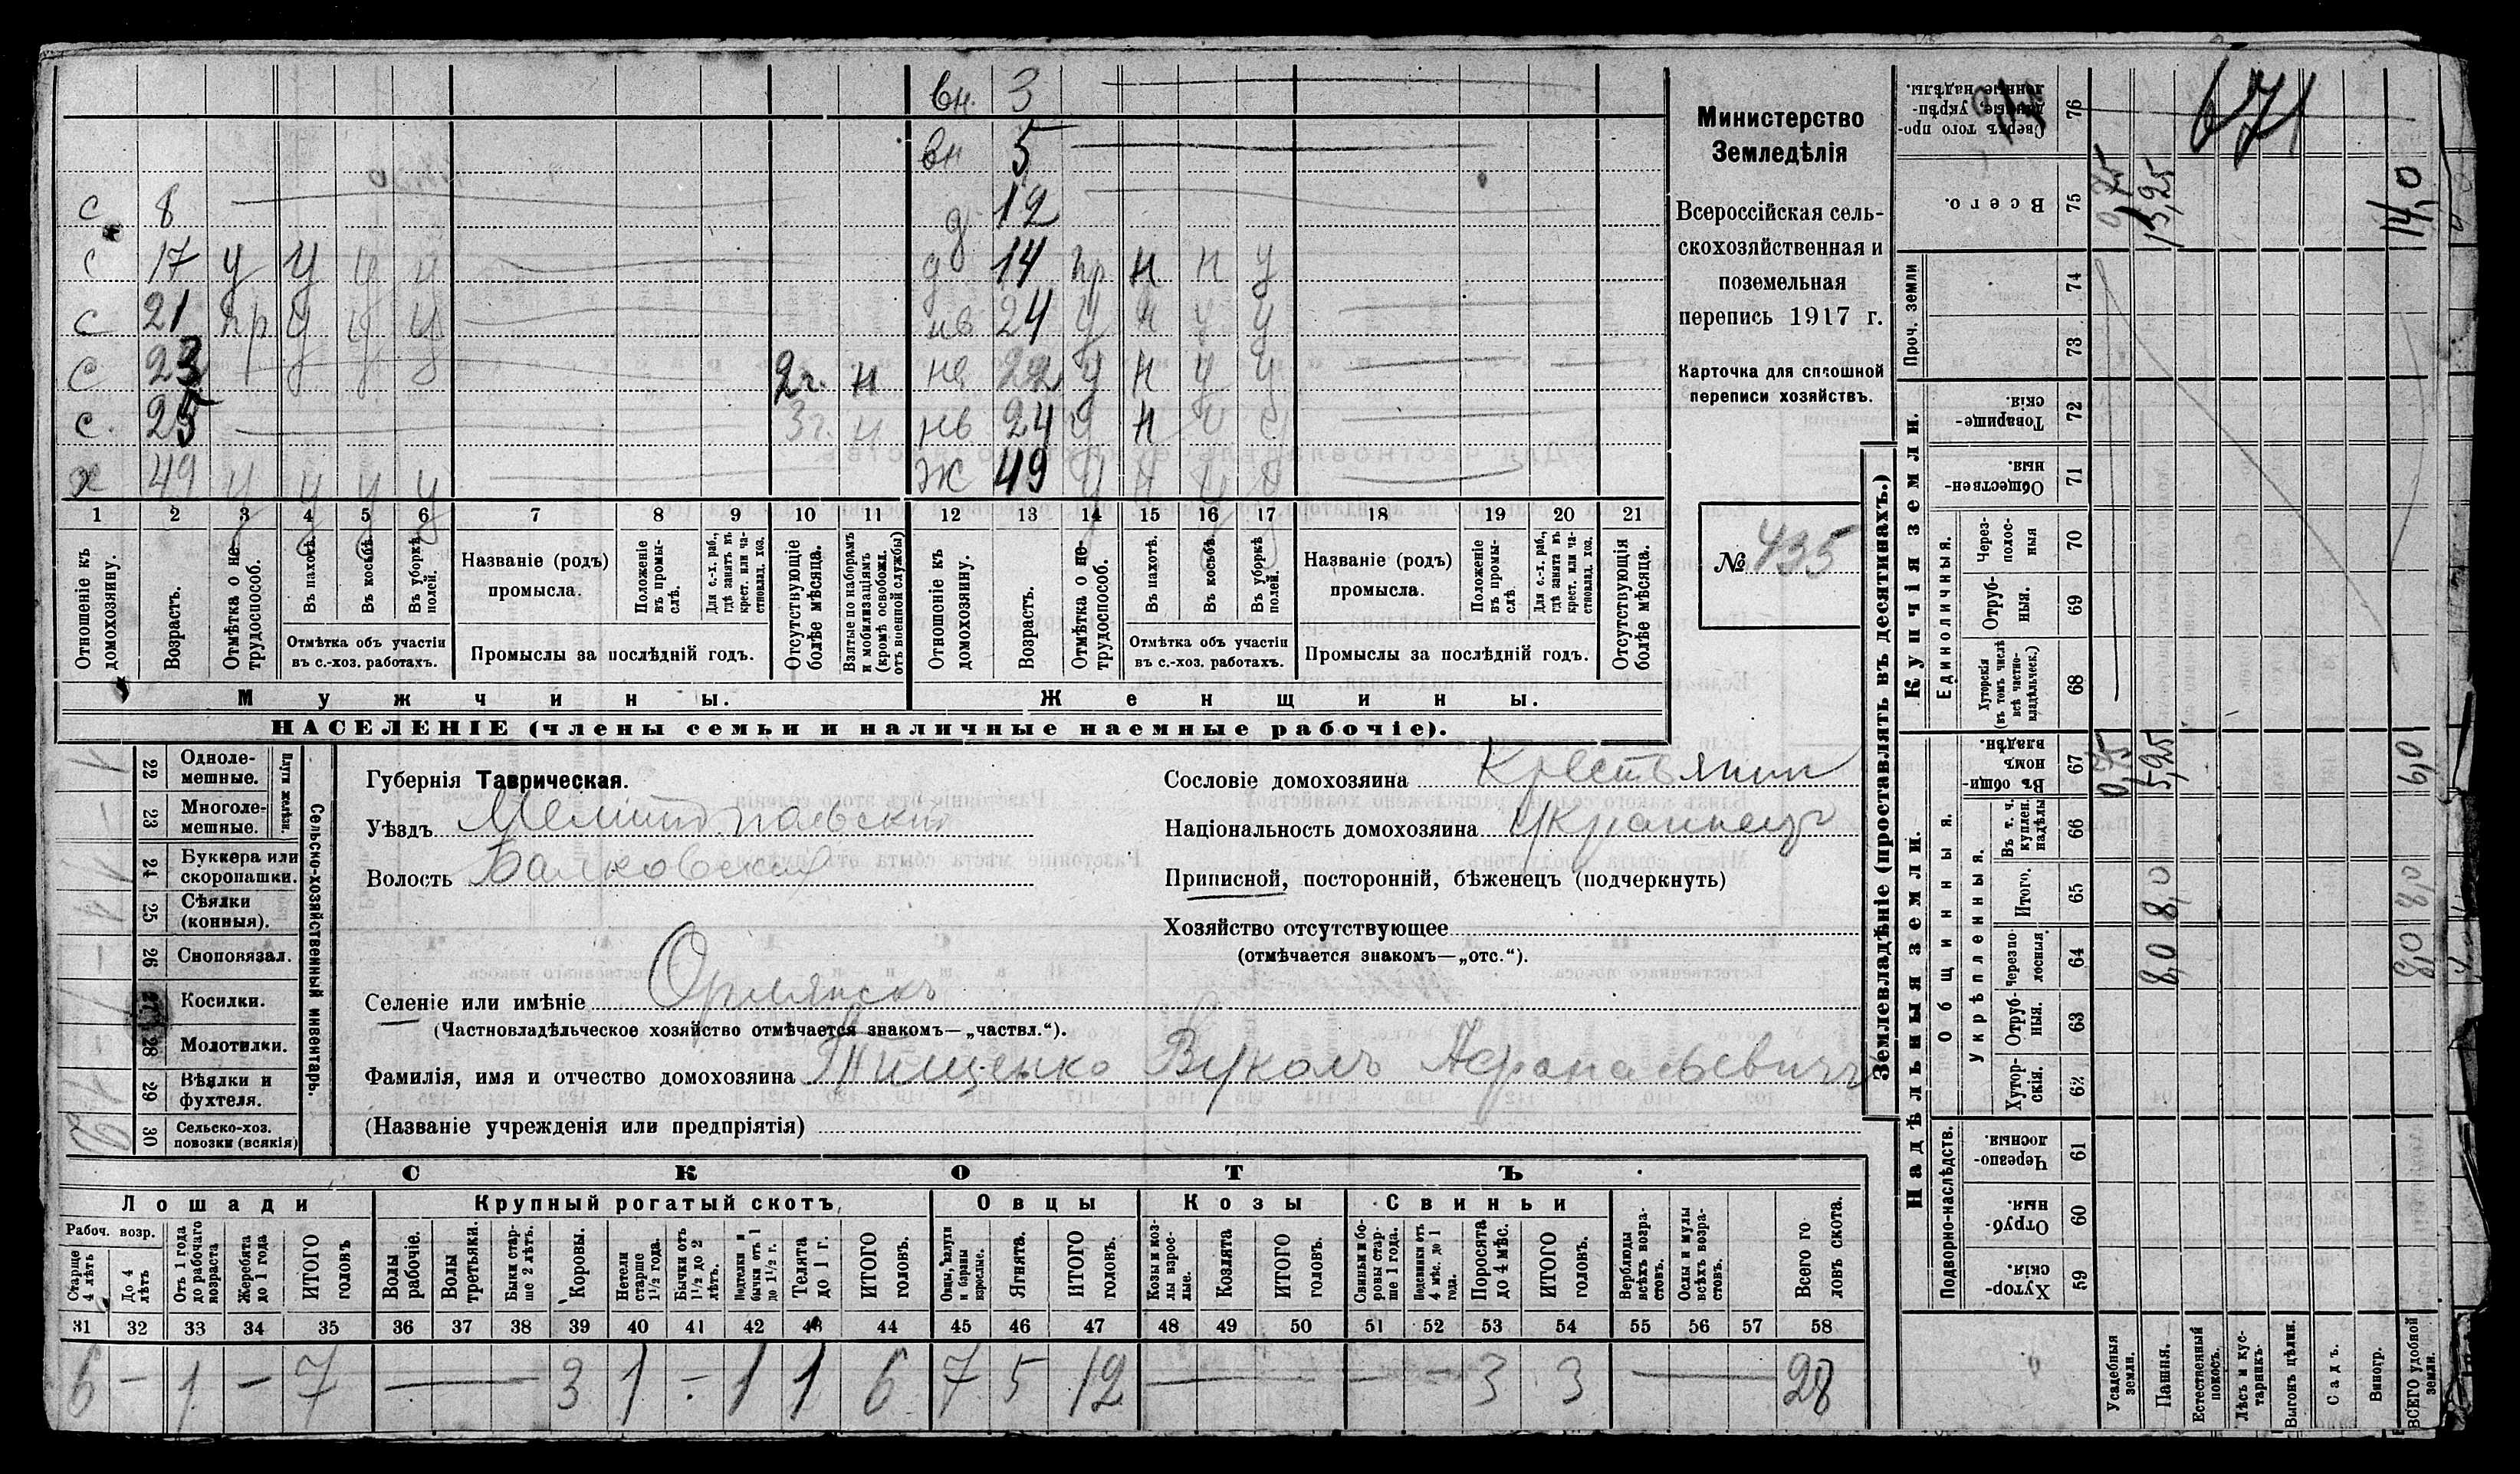 вн. 3
вн 5
с 8
д 12
с 17 у у у у
д 14 пр н н у
с 21 пр у у у
нв 24 у н у у
с 23
2г. н
нв 22 у н у у
с. 25
3г. н
нв 24 у н у у
х 49 у у у у
ж 49 у н у у
1 2 3 4 5 6 7 8 9 10 11 12 13 14 15 16 17 18 19 20 21
Отношеніе къ домохозяину.
Возрастъ.
Отмѣтка о не-трудоспособ.
Въ пахотѣ.
Въ косьбѣ.
Въ уборкѣ полей.
Отмѣтка объ участіи
въ с.-хоз. работахъ.
Названіе (родъ)
промысла.
Положеніе въ промы-слѣ.
Для с.-х. раб., гдѣ занятъ въ крест. или ча-стновлад. хоз.
Промыслы за послѣдній годъ.
Отсутствующіе болѣе мѣсяца.
Взятые по наборамъ и мобилизаціямъ (кромѣ освобожд. отъ военной службы)
Отношеніе къ домохозяину.
Возрастъ.
Отмѣтка о не-трудоспособ.
Въ пахотѣ.
Въ косьбѣ.
Въ уборкѣ полей.
Отмѣтка объ участіи
въ с.-хоз. работахъ.
Названіе (родъ)
промысла.
Положеніе въ промы-слѣ.
Для с.-х. раб., гдѣ занята въ крест. или ча-стновлад. хоз.
Промыслы за послѣдній годъ.
Отсутствующія болѣе мѣсяца.
Мужчины.
Женщины.
НАСЕЛЕНІЕ (члены семьи и наличные наемные рабочіе).
Министерство
Земледѣлія
Всероссійская сель-
скохозяйственная и
поземельная
перепись 1917 г.
Карточка для сплошной
переписи хозяйствъ.
№ 435
22 Одноле-мешные.
23 Многоле-мешные.
Плуги желѣзн.
24 Буккера или скоропашки.
25 Сѣялки (конныя).
26 Сноповязал.
27 Косилки.
28 Молотилки.
29 Вѣялки и фухтеля.
30 Сельско-хоз. повозки (всякія)
Сельско-хозяйственный инвентарь.
Губернія Таврическая.
Уѣздъ Мелитопольскій
Волость Балковская
Сословіе домохозяина Крестьянин
Національность домохозяина Украинецъ
Приписной, посторонній, бѣженецъ (подчеркнуть)
Хозяйство отсутствующее
(отмѣчается знакомъ—„отс.“).
Селеніе или имѣніе Орлянскъ
(Частновладѣльческое хозяйство отмѣчается знакомъ—„частвл.“).
Фамилія, имя и отчество домохозяина Тищенко Вуколъ Афанасьевичъ
(Названіе учрежденія или предпріятія)
СКОТЪ
Лошади
Крупный рогатый скотъ,
Овцы
Козы
Свиньи
Рабоч. возр.
Старше 4 лѣтъ
До 4 лѣтъ
Отъ 1 года до рабочаго возраста
Жеребята до 1 года
ИТОГО головъ
Волы рабочіе.
Волы третьяки.
Быки стар-ше 2 лѣтъ.
Коровы.
Нетели старше 1½ года.
Бычки отъ 1½ до 2 лѣтъ.
Подтелки и бычки отъ 1 до 1½ г.
Телята до 1 г.
ИТОГО головъ.
Овцы, валухи и бараны взрослые.
Ягнята.
ИТОГО головъ.
Козы и коз-лы взрос-лые.
Козлята
ИТОГО головъ.
Свиньи и бо-ровы стар-ше 1 года.
Подсвинки отъ 4 мѣс. до 1 года.
Поросята до 4 мѣс.
ИТОГО головъ.
Верблюды всѣхъ возра-стовъ.
Ослы и мулы всѣхъ возра-стовъ.
Всего го ловъ скота.
31 32 33 34 35 36 37 38 39 40 41 42 43 44 45 46 47 48 49 50 51 52 53 54 55 56 57 58
6 — 1 — 7 — 3 1 - 1 1 6 7 5 12 — — - 3 3 — 28
Землевладѣніе (проставлять въ десятинахъ.)
Купчія земли.
Надѣльныя земли.
Проч. земли
Единоличныя.
Общинныя.
Укрѣпленныя.
Подворно-наслѣдств.
76 Сверхъ того про-данные укрѣп-ленные надѣлы.
671
75 Всего.
0,75
13,25
14,0
74
73
72 Товарище-скія.
71 Обществен-ныя.
70 Через-полос-ныя
69 Отруб-ныя.
68 Хуторскія (въ томъ числѣ всѣ частно-владѣльческ.)
67 Въ общи номъ владѣн.
0,75
5,25
6,0
66 Въ т. ч. куплен. надѣлы
65 Итого.
8,0
8,0
64 Черезпо-лосныя.
8,0
8,0
63 Отруб-ныя.
62 Хутор-скія.
61 Черезпо-лосныя.
60 Отруб-ныя.
59 Хутор-скія.
Усадебныя земли.
Пашня.
Естественный покосъ.
Лѣсъ и кус-тарникъ.
Выгонъ цѣлин.
Садъ.
Виногр.
ВСЕГО удобной земли.